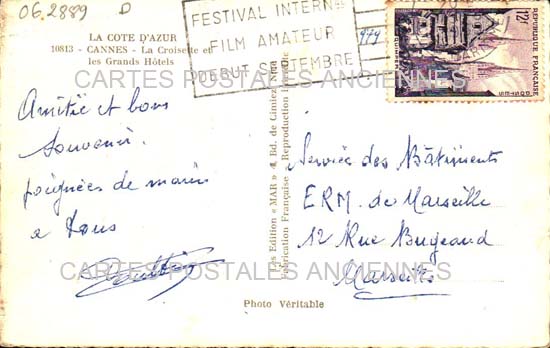 06.2889 D
LA COTE D'AZUR
10813 - CANNES - La Croisette et
les Grands Hôtels
FESTIVAL INTERNAL
FILM AMATEUR
DEBUT SEPTEMBRE
REPUBLIQUE FRANÇAISE
12F
QUIMPER
POSTES
CARTES POSTALES ANCIENNES
Amitié et bons
souvenirs.
poignées de mains
a tous
Les Edition « MAR » Ed. de Cimiez Nice
Fabrication Française - Reproduction Interdite
Services des Bâtiments
ERM. de Marseille
12 Rue Bugeaud
Marseille
CARTES POSTALES ANCIENNES
Photo Véritable